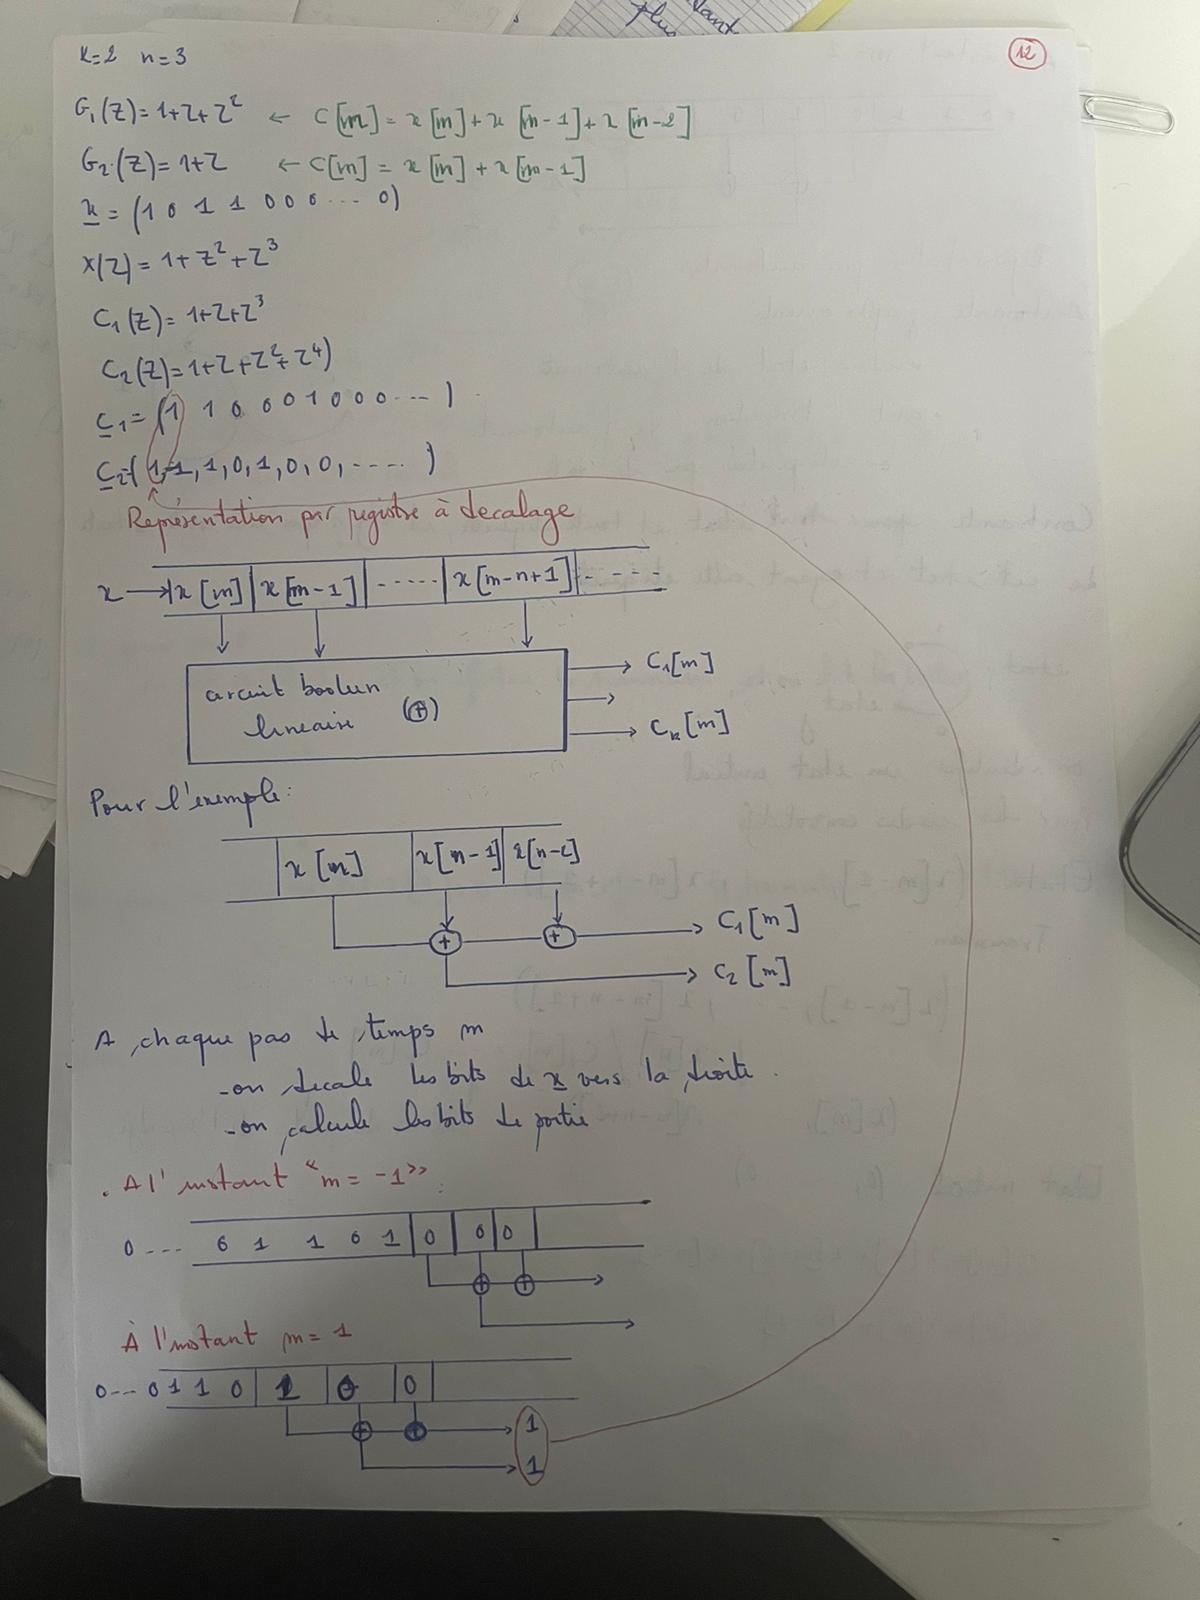 plus
tant
12
K=2 n=3
G₁(Z)=1+Z+Z² ← C[m]= x[m]+x[m-1]+x[m-2]
G₂(Z)=1+Z ← C[m] = x[m]+x[m-1]
x = (1 0 1 1 0 0 0 ... 0)
X(Z)= 1+Z²+Z³
C₁(Z)= 1+Z+Z³
C₂(Z)=1+Z+Z²+Z⁴)
C₁= (1 1 0 0 0 1 0 0 0 ... )
C₂=( 1,1,1,0,1,0,0,.... )
Représentation par registre à decalage
x → x[m] x[m-1] ..... x[m-n+1] ....
circuit booleen C₁[m]
lineaire (+) Cₖ[m]
Pour l'exemple:
x[m] x[m-1] x[m-2]
+ + C₁[m]
C₂[m]
A chaque pas de temps m
-on decale les bits de x vers la droite.
-on calcule les bits de sortie
. A l'instant "m= -1" :
0 ... 0 1 1 0 1 0 0 0
+ +
À l'instant m= 1
0--- 0 1 1 0 1 0 0
+ + 1
1